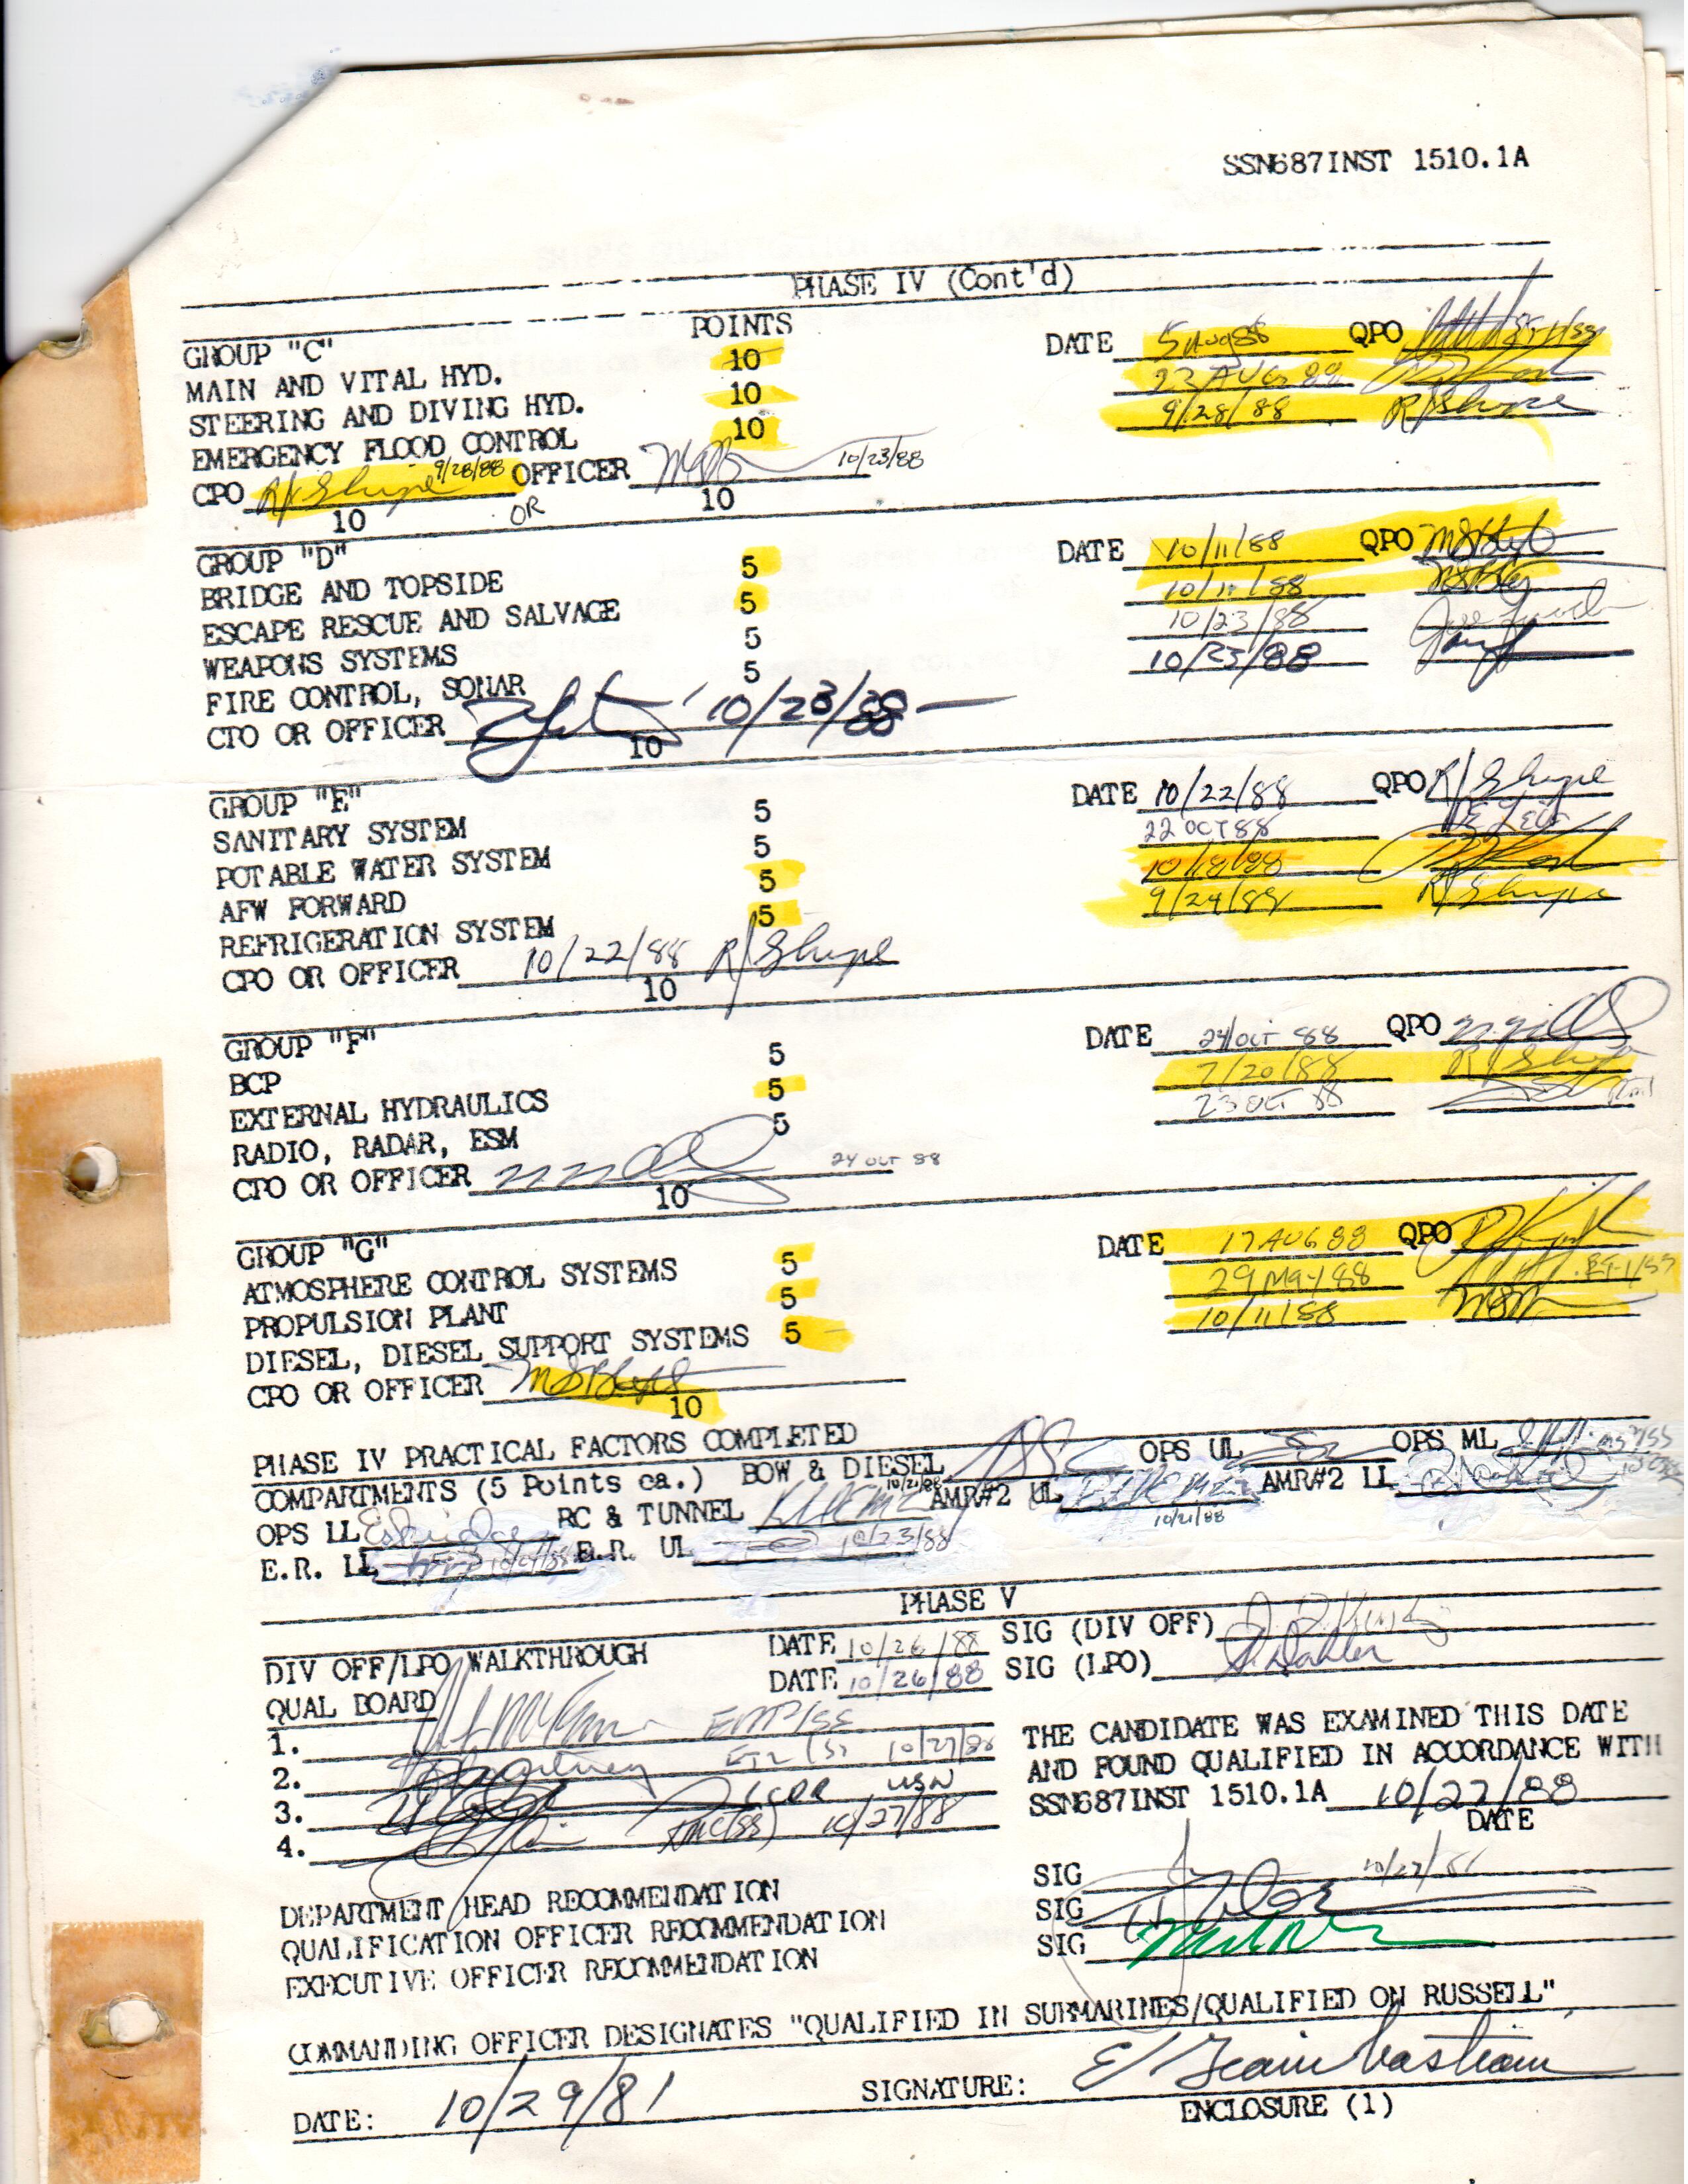 SSN687INST 1510.1A
PHASE IV (Cont'd)
GROUP "C" POINTS DATE 5 Aug 88 QPO
MAIN AND VITAL HYD. 10 23 AUG 88
STEERING AND DIVING HYD. 10 9/28/88 R/Shupe
EMERGENCY FLOOD CONTROL 10
CPO R/Shupe 9/28/88 OFFICER 10/23/88
10 OR 10
GROUP "D" DATE 10/11/88 QPO
BRIDGE AND TOPSIDE 5 10/11/88
ESCAPE RESCUE AND SALVAGE 5 10/23/88
WEAPONS SYSTEMS 5 10/23/88
FIRE CONTROL, SONAR 5
CPO OR OFFICER 10/23/88
10
GROUP "E" DATE 10/22/88 QPO R/Shupe
SANITARY SYSTEM 5 22 OCT 88
POTABLE WATER SYSTEM 5 10/18/88
AFW FORWARD 5 9/24/88 R/Shupe
REFRIGERATION SYSTEM 5
CPO OR OFFICER 10/22/88 R/Shupe
10
GROUP "F" DATE 24 OCT 88 QPO
BCP 5 7/20/88 R/Shupe
EXTERNAL HYDRAULICS 5 23 OCT 88
RADIO, RADAR, ESM 5
CPO OR OFFICER 24 OCT 88
10
GROUP "G" DATE 17 AUG 88 QPO
ATMOSPHERE CONTROL SYSTEMS 5 29 May 88
PROPULSION PLANT 5 10/11/88
DIESEL, DIESEL SUPPORT SYSTEMS 5
CPO OR OFFICER
10
PHASE IV PRACTICAL FACTORS COMPLETED
COMPARTMENTS (5 Points ea.) BOW & DIESEL OPS UL OPS ML
OPS LL Eskridge RC & TUNNEL 10/21/88 AMR#2 UL 10/21/88 AMR#2 LL
E.R. LL E.R. UL 10/23/88
PHASE V
DIV OFF/LPO WALKTHROUGH DATE 10/26/88 SIG (DIV OFF)
QUAL BOARD DATE 10/26/88 SIG (LPO)
1.
2. 10/27/88
3. LCDR USN
4. 10/27/88
THE CANDIDATE WAS EXAMINED THIS DATE
AND FOUND QUALIFIED IN ACCORDANCE WITH
SSN687INST 1510.1A 10/27/88
DATE
DEPARTMENT HEAD RECOMMENDATION SIG
QUALIFICATION OFFICER RECOMMENDATION SIG
EXECUTIVE OFFICER RECOMMENDATION SIG
COMMANDING OFFICER DESIGNATES "QUALIFIED IN SUBMARINES/QUALIFIED ON RUSSELL"
DATE: 10/29/81 SIGNATURE:
ENCLOSURE (1)